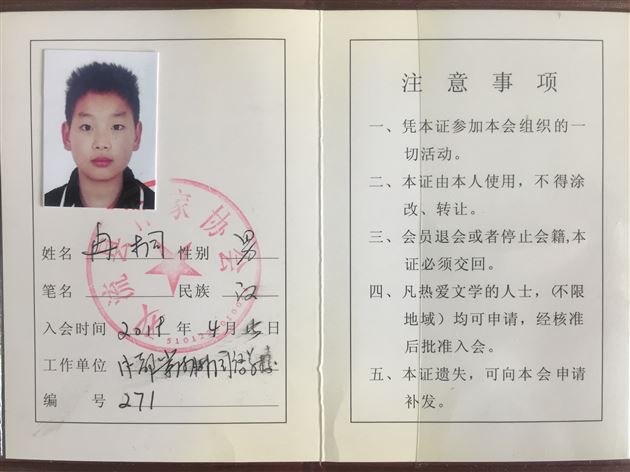 家协会
姓名 冉桐 性别 男
笔名 民族 汉
入会时间 2019 年 4 月 日
工作单位
编 号 271
注意事项
一、凭本证参加本会组织的一
切活动。
二、本证由本人使用，不得涂
改、转让。
三、会员退会或者停止会籍,本
证必须交回。
四、凡热爱文学的人士，(不限
地域）均可申请，经核准
后批准入会。
五、本证遗失，可向本会申请
补发。